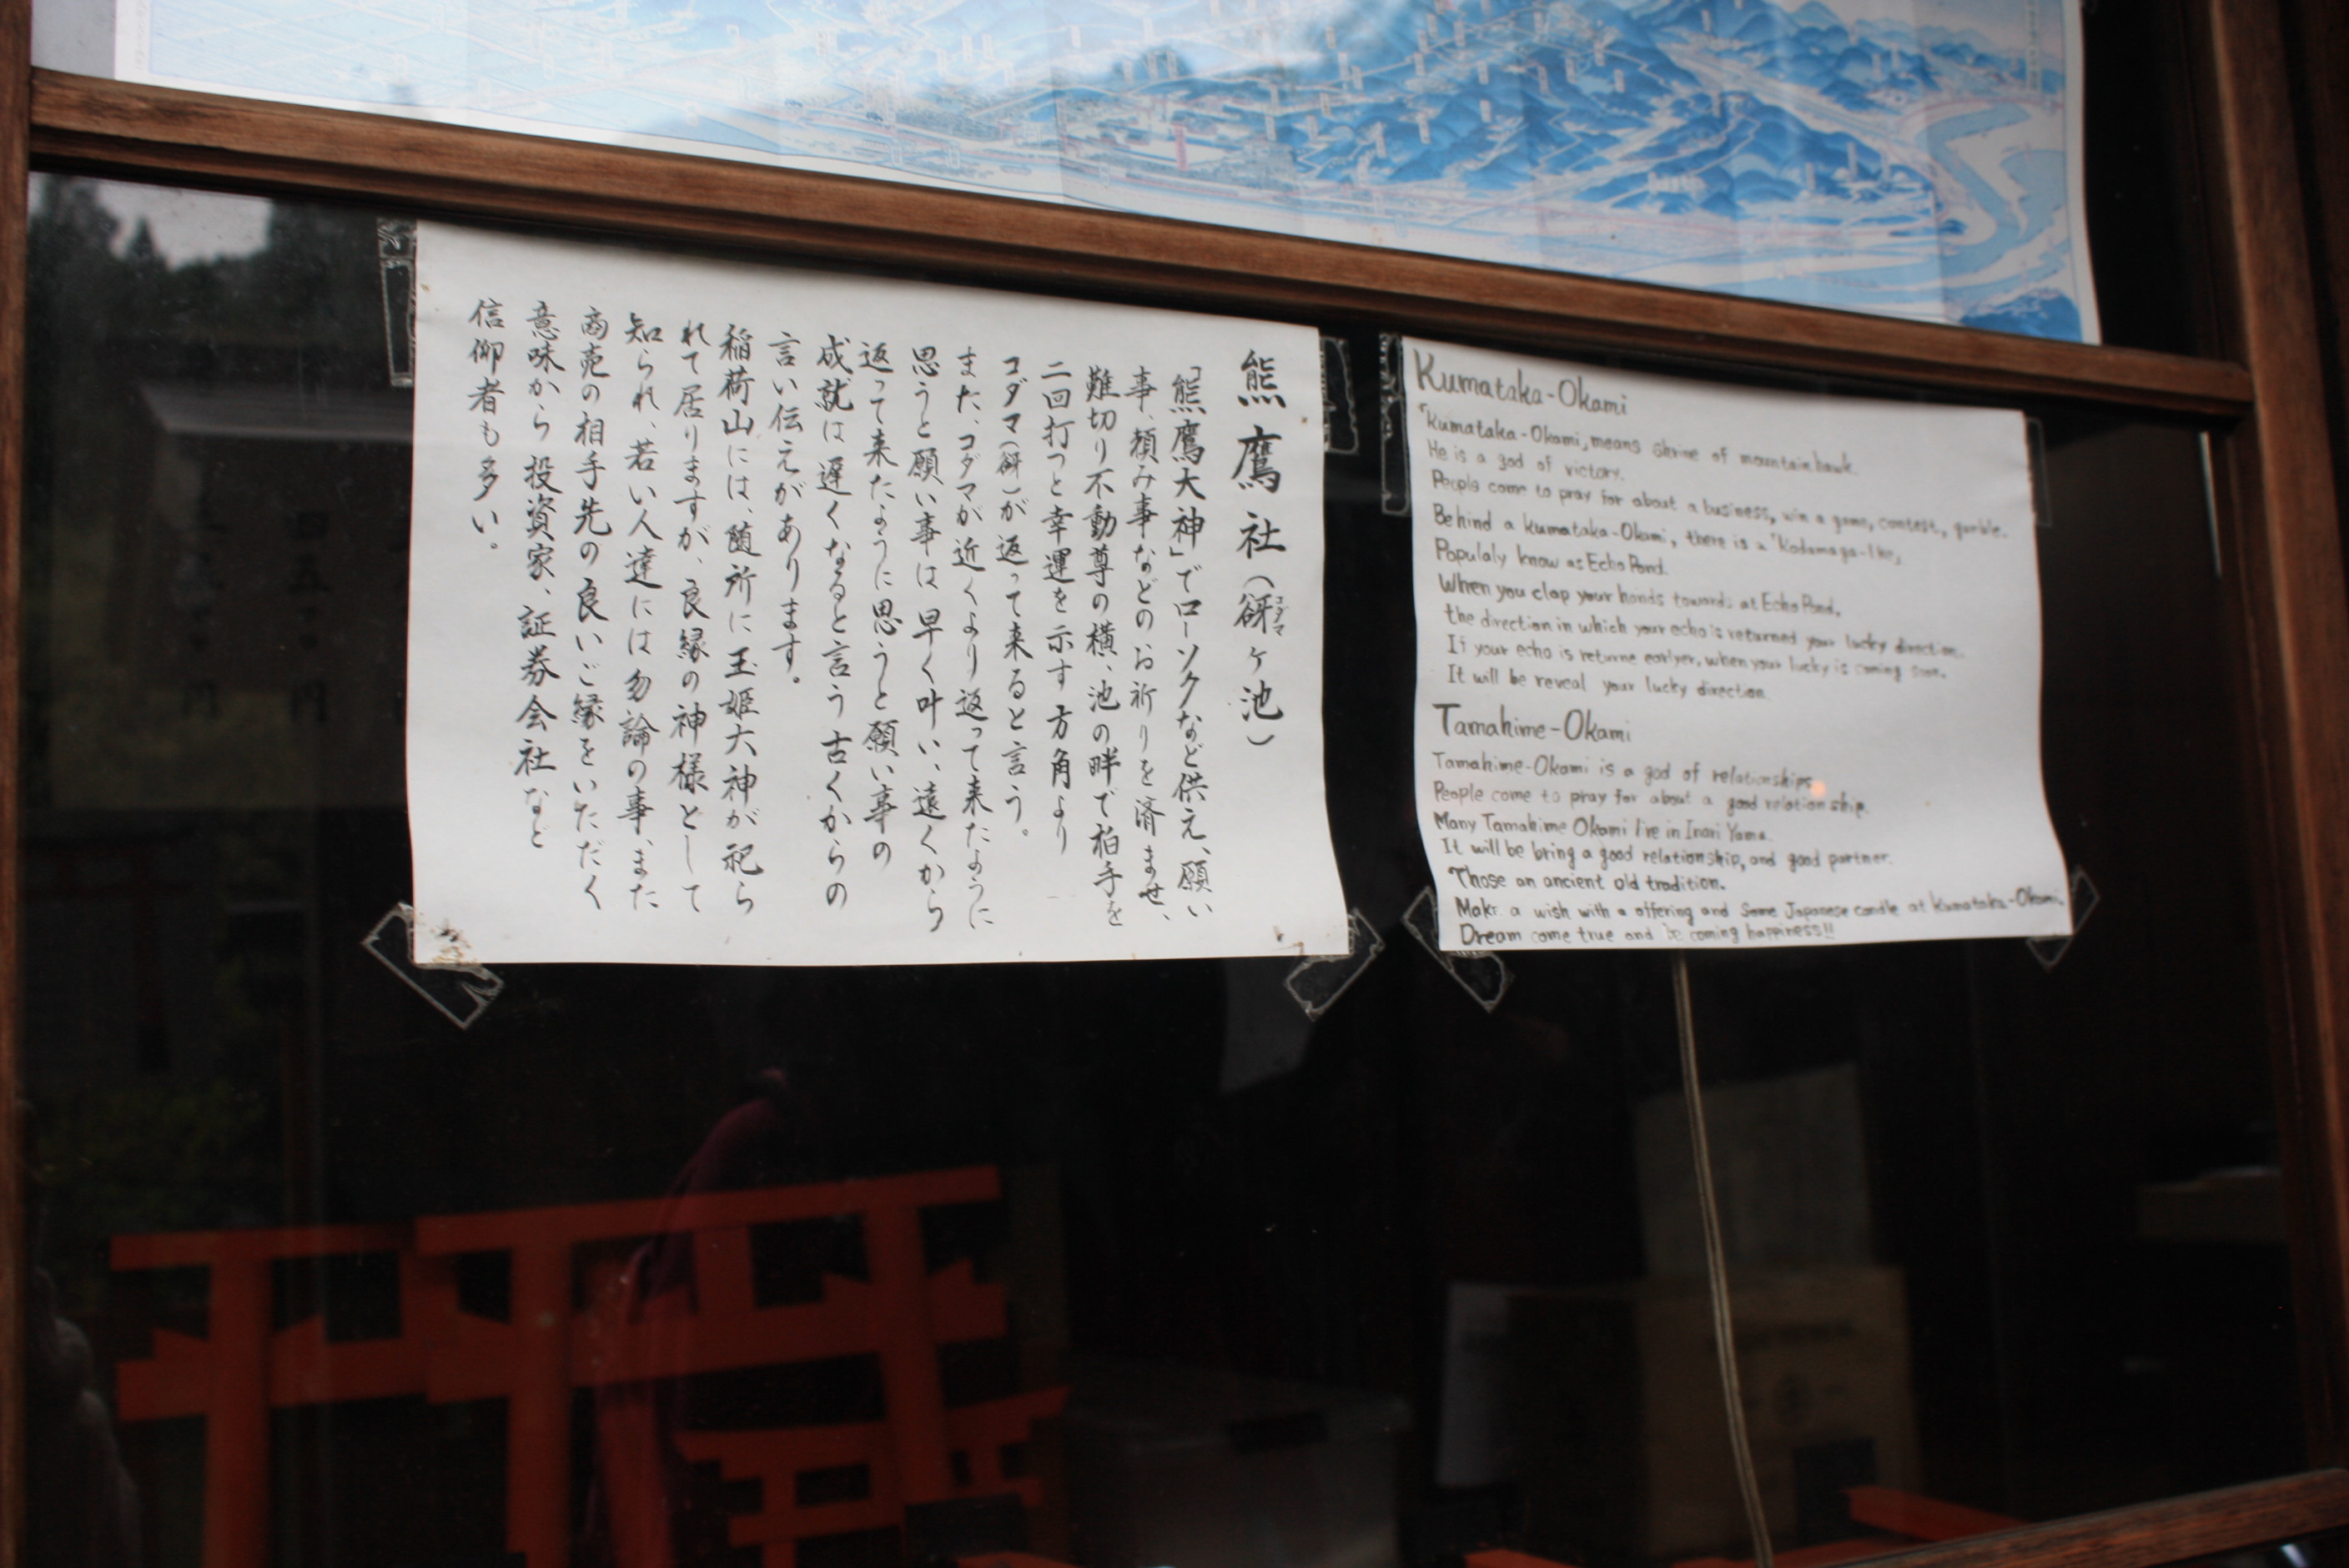 熊鷹社(谺ヶ池)
コダマ
「熊鷹大神」でローソクなど供え、願い
事、頼み事などのお祈りを済ませ、
難切り不動尊の横、池の畔で柏手を
二回打つと幸運を示す方角より
コダマ(谺)が返って来ると言う。
また、コダマが近くより返って来たように
思うと願い事は早く叶い、遠くから
返って来たように思うと願い事の
成就は遅くなると言う古くからの
言い伝えがあります。
稲荷山には、随所に玉姫大神が祀ら
れて居りますが、良縁の神様として
知られ、若い人達には勿論の事、また
商売の相手先の良いご縁をいただく
意味から投資家、証券会社など
信仰者も多い。
Kumataka-Okami
「Kumataka-Okami」means shrine of mountain hawk.
He is a god of victory.
People come to pray for about a business, win a game, contest, gamble.
Behind a Kumataka-Okami, there is a「Kodamaga-Ike」
Populaly know as Echo Pond.
When you clap your hands towards at Echo Pond,
the direction in which your echo is returned your lucky direction.
If your echo is returne earlyer, when your lucky is coming soon.
It will be reveal your lucky direction.
Tamahime-Okami
Tamahime-Okami is a god of relationships
People come to pray for about a good relation ship.
Many Tamahime Okami I're in Inari Yama.
It will be bring a good relationship, and good partner.
Those an ancient old tradition.
Make a wish with a offering and Some Japanese candle at Kumataka-Okami.
Dream come true and be coming happiness!!